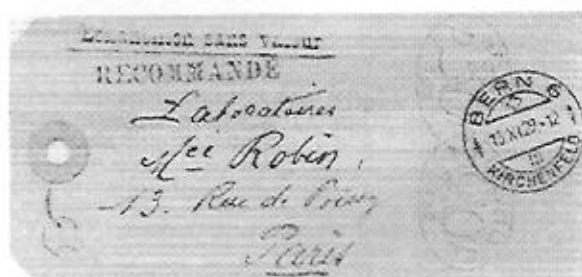 Echantillon sans valeur
RECOMMANDÉ
Laboratoires
Mce Robin,
13. Rue de Poissy
Paris
BERN 6
13.XI.29.-12
III
KIRCHENFELD